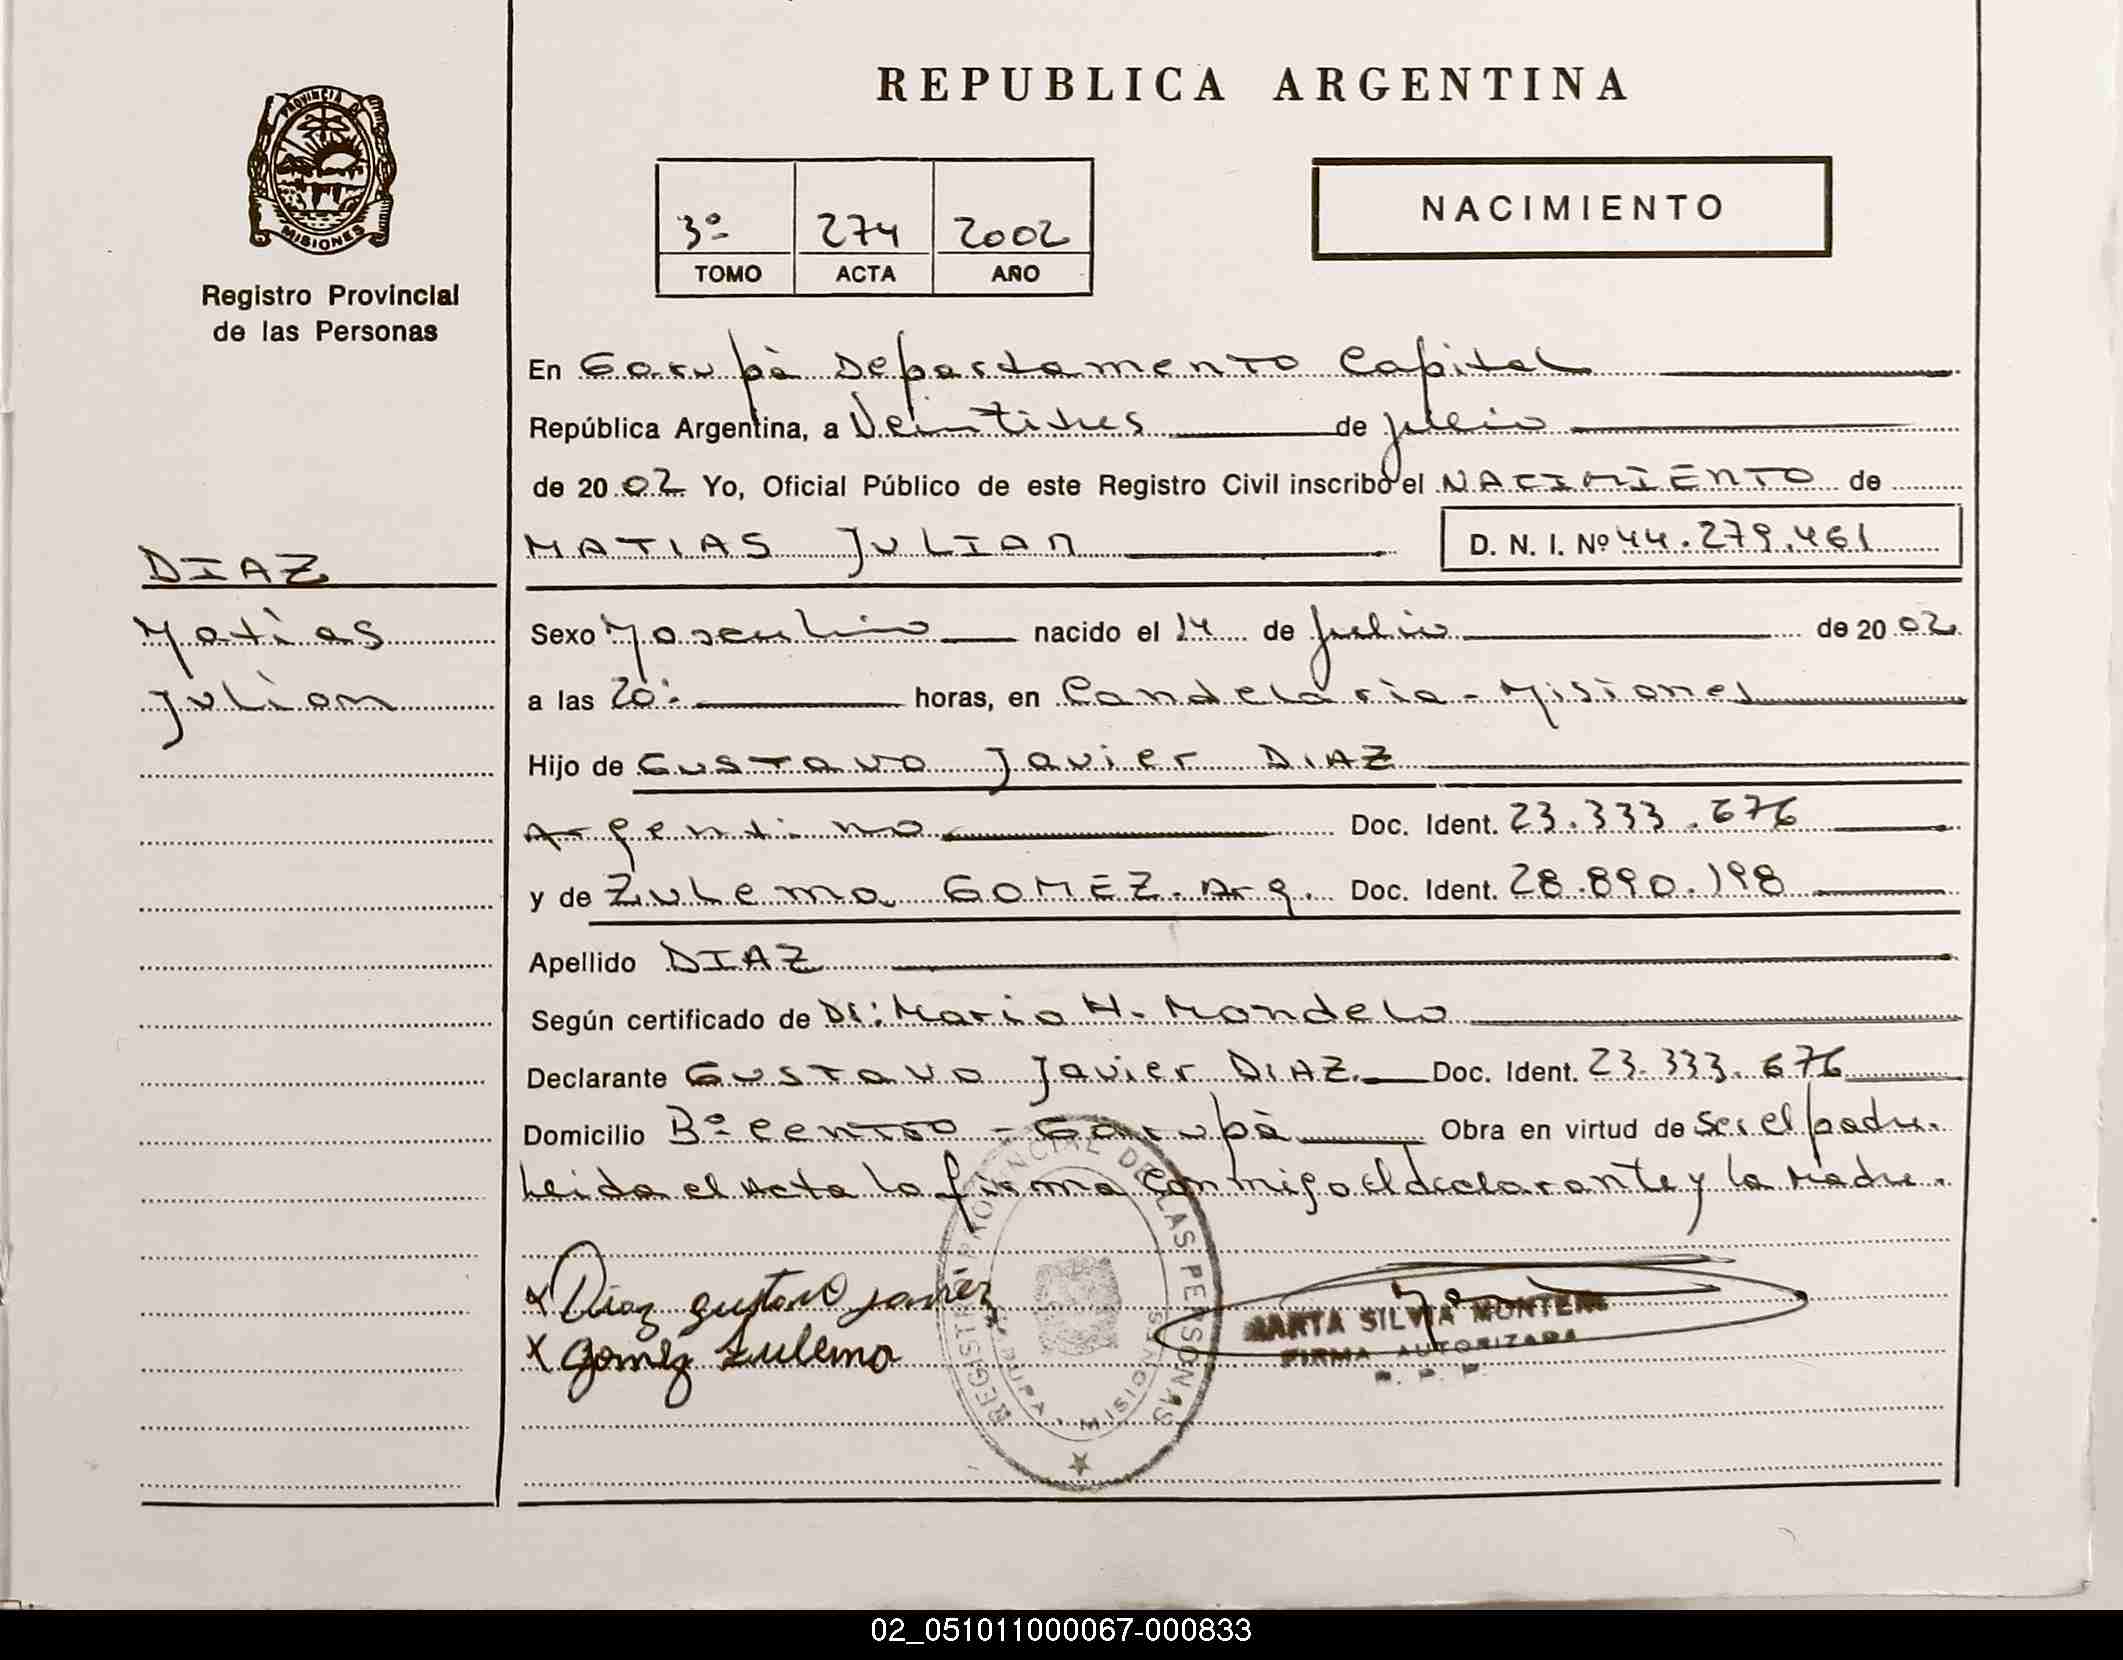 REPUBLICA ARGENTINA
PROVINCIA DE
MISIONES
Registro Provincial
de las Personas
3º 274 2002
TOMO ACTA AÑO
NACIMIENTO
En Garupà Departamento Capital
República Argentina, a Veintitres de julio
de 20 02 Yo, Oficial Público de este Registro Civil inscribo el NACIMIENTO de
MATIAS JULIAN D. N. I. Nº 44.279.461
DIAZ
Matias
Julian
Sexo Masculino nacido el 14 de Julio de 20 02
a las 20: horas, en Candelaria - Misiones
Hijo de Gustavo Javier DIAZ
Argentino Doc. Ident. 23.333.676
y de Zulema GOMEZ. Arg. Doc. Ident. 28.890.198
Apellido DIAZ
Según certificado de Dr: Mario H. Mondelo
Declarante Gustavo Javier DIAZ. Doc. Ident. 23.333.676
Domicilio Bº Centro - Garupà Obra en virtud de ser el padre.
Leida el Acta la firma conmigo el declarante y la Madre.
x Diaz gustavo javier
x Gomez Zulema
REGISTRO PROVINCIAL DE LAS PERSONAS
MISIONES
MARTA SILVIA
FIRMA AUTORIZADA
R. P. P.
02_051011000067-000833